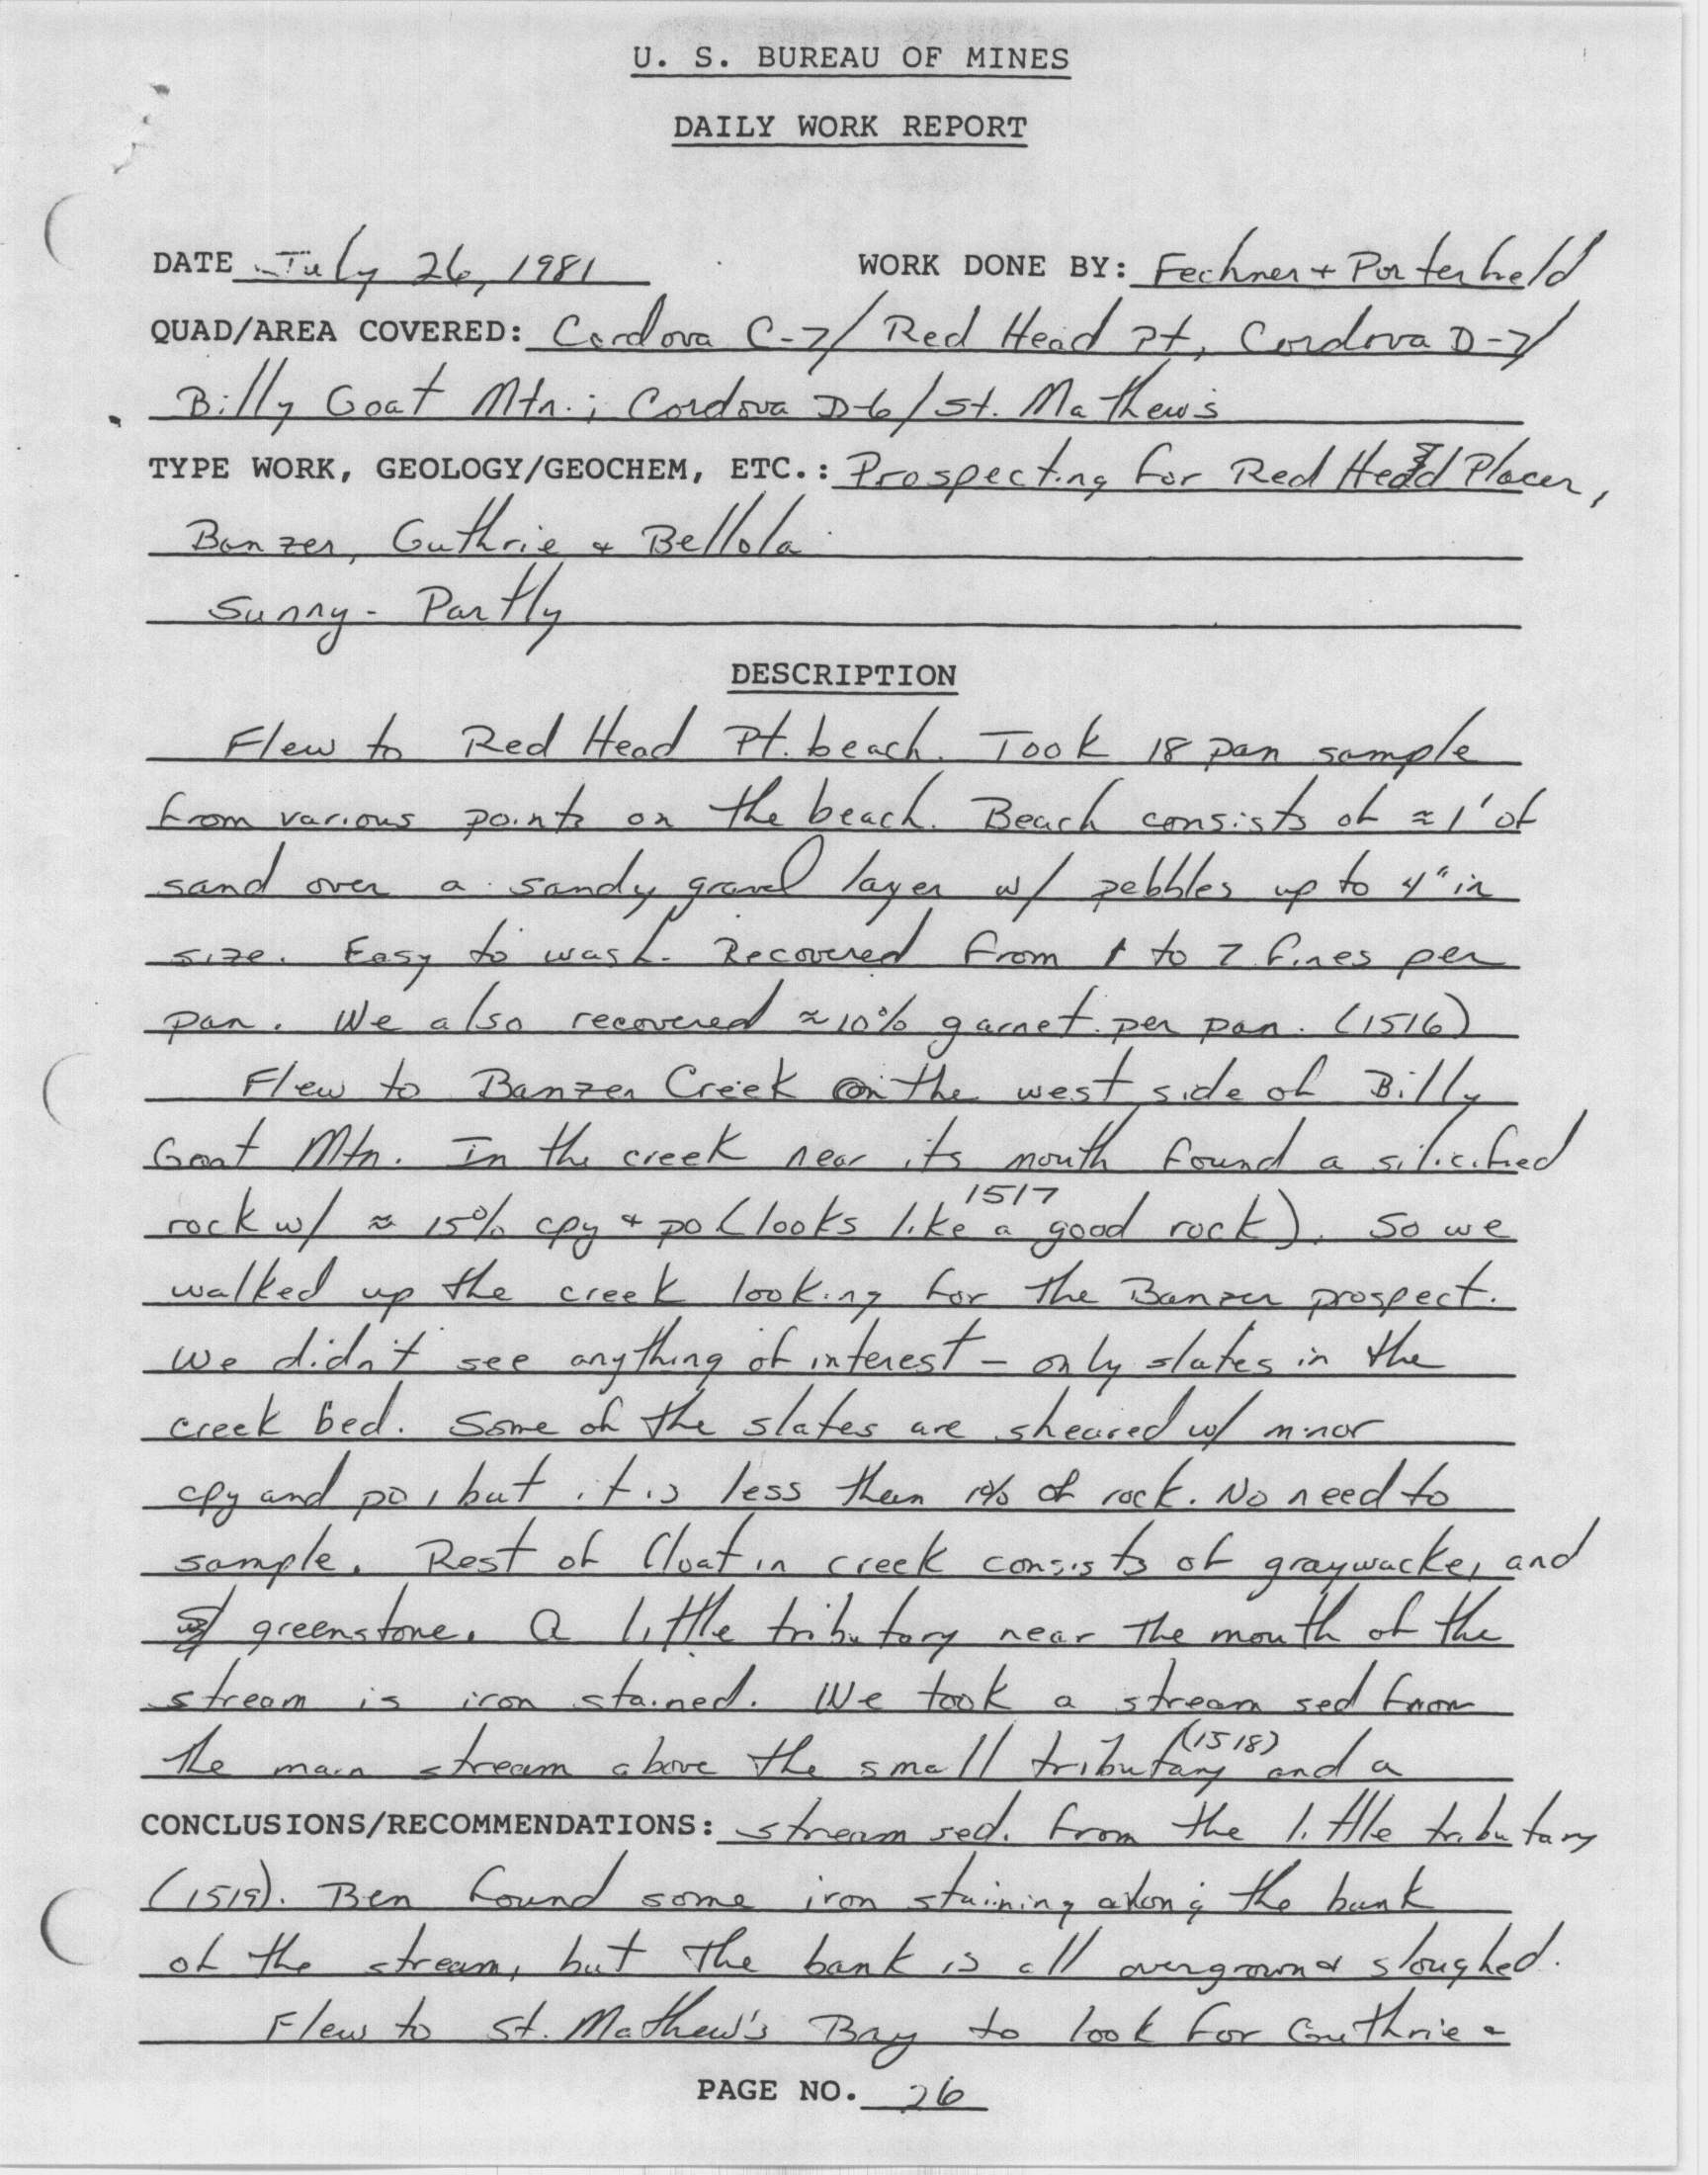 U. S. BUREAU OF MINES
DAILY WORK REPORT
DATE July 26, 1981 WORK DONE BY: Fechner + Porterfield
QUAD/AREA COVERED: Cordova C-7/ Red Head Pt, Cordova D-7/
Billy Goat Mtn.; Cordova D-6/St. Mathews
TYPE WORK, GEOLOGY/GEOCHEM, ETC.: Prospecting for Red Head Placer,
Banzer, Guthrie & Bellola
Sunny - Partly
DESCRIPTION
Flew to Red Head Pt. beach. Took 18 pan sample
from various points on the beach. Beach consists of ≈ 1' of
sand over a sandy gravel layer w/ pebbles up to 4" in
size. Easy to wash. Recovered from 1 to 7 fines per
pan. We also recovered ≈ 10% garnet per pan. (1516)
Flew to Banzer Creek on the west side of Billy
Goat Mtn. In the creek near its mouth found a silicified
1517
rock w/ ≈ 15% cpy & po (looks like a good rock). So we
walked up the creek looking for the Banzer prospect.
We didn't see anything of interest - only slates in the
creek bed. Some of the slates are sheared w/ minor
cpy and po, but it is less than 1% of rock. No need to
sample. Rest of float in creek consists of graywacke, and
greenstone. A little tributary near the mouth of the
stream is iron stained. We took a stream sed from
(1518)
the main stream above the small tributary and a
CONCLUSIONS/RECOMMENDATIONS: stream sed. from the little tributary
(1519). Ben found some iron staining along the bank
of the stream, but the bank is all overgrown & sloughed.
Flew to St. Mathew's Bay to look for Guthrie &
PAGE NO. 26